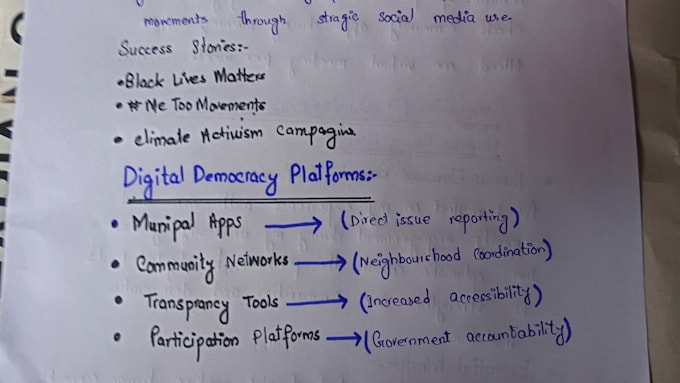 movements through stragic social media use.
Success Stories:-
• Black Lives Matters
• # Me Too Movements
• climate Activism Campagins.
Digital Democracy Platforms:-
• Munipal Apps → (Direct issue reporting)
• Community Networks → (Neighbourshood Coordination)
• Transprancy Tools → (Increased accessibility)
• Participation Platforms → (Government accountability)